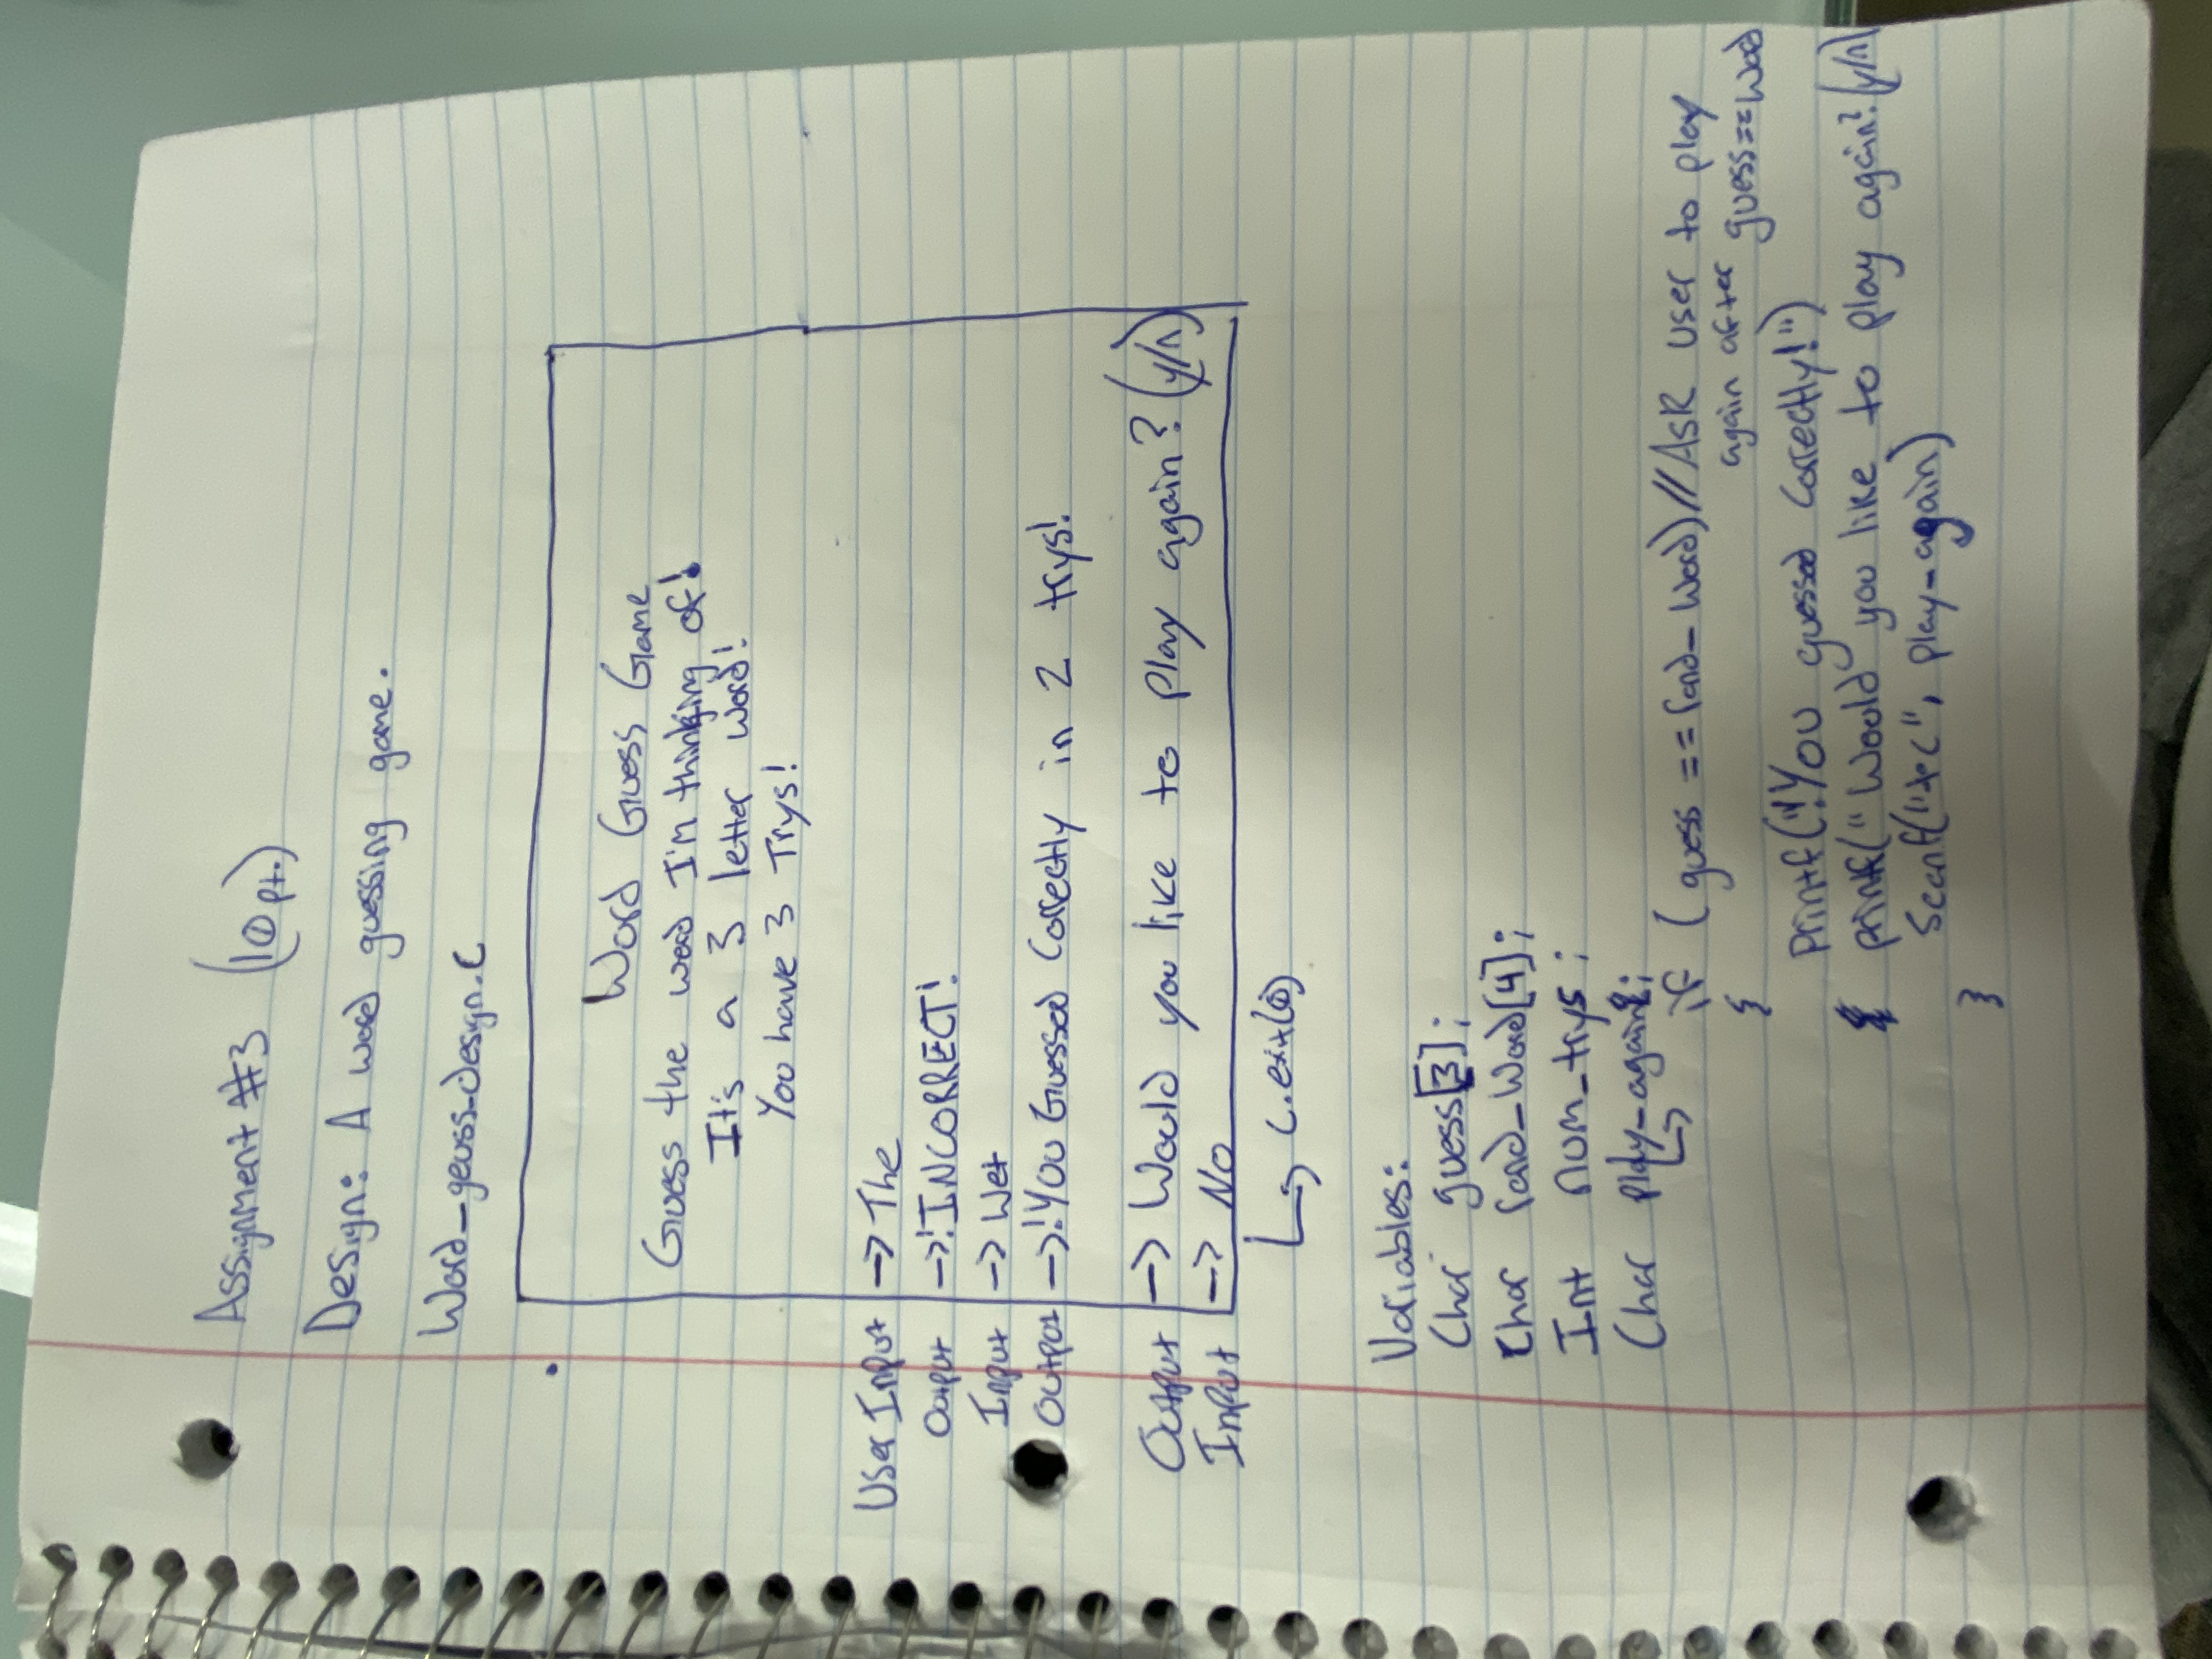 Assignment #3 (10 pt.)
Design: A word guessing game.
Word_geuss_design.c
Word Guess Game
Guess the word I'm thinking of!
It's a 3 letter word!
You have 3 Trys!
User Input -> The
Output ->!INCORRECT!
Input -> Wet
Output ->!YOU Guessed Correctly in 2 trys!
Output -> Would you like to play again? (y/n)
Input -> No
c.exit(0)
Variables:
Char guess[3];
Char rand_Word[4];
Int num_trys;
Char play_again;
if (guess == rand_Word)//Ask user to play
again after guess==word
{
printf("!You guessed Correctly!")
printf("Would you like to play again? (y/n)
Scanf("%c", play_again)
}